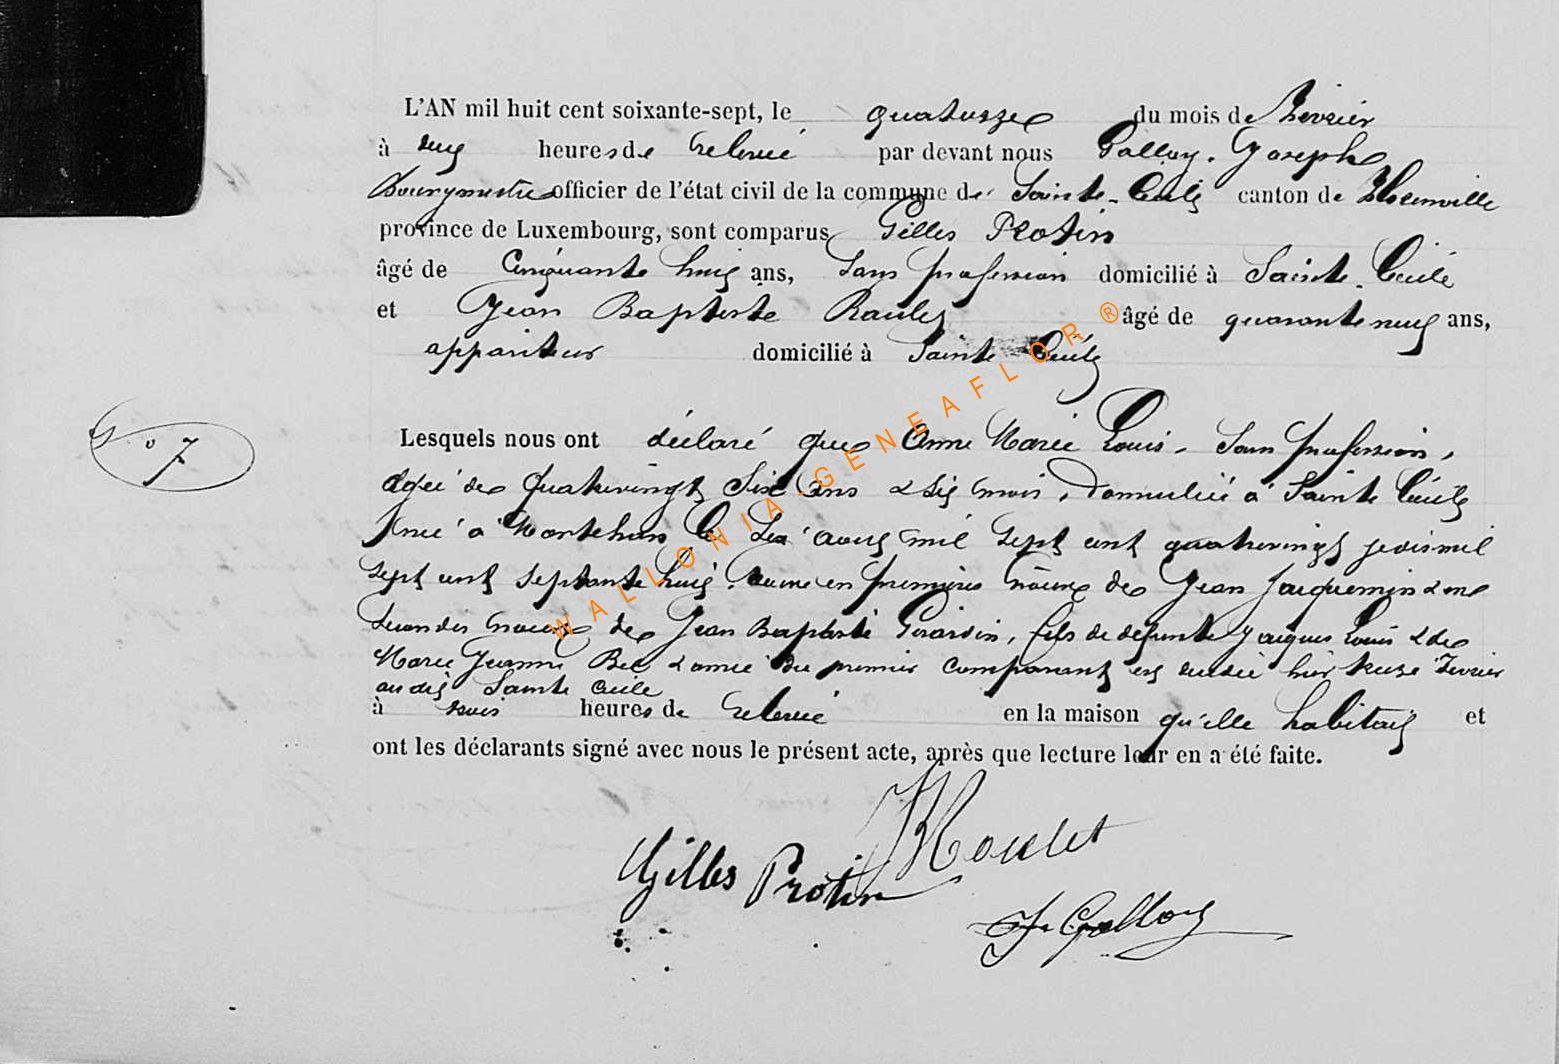 L'AN mil huit cent soixante-sept, le quatorze du mois de Fevrier
à deux heures de relevée par devant nous Galloy, Joseph
Bourgmestre officier de l'état civil de la commune de Sainte-Cécile canton de Florenville
province de Luxembourg, sont comparus Gilles Protin
âgé de Cinquante huit ans, sans profession domicilié à Sainte-Cécile
et Jean Baptiste âgé de quarante neuf ans,
appariteur domicilié à Sainte Cécile
No 7
Lesquels nous ont déclaré que Anne Marie Louis, sans profession,
agée de quatrevingt six ans & six mois, domiciliée à Sainte Cécile
née à Mortehan le août mil sept cent quatrevingt
sept cent septante huit, en premières noces de Jean Jacquemin & en
secondes noces de Jean Baptiste Gérardin, fils de defunte Jacques Louis & de
Marie Jeanne & amie du premier comparant est décédée hier treize Fevrier
au dit Sainte Cécile
à trois heures de relevée en la maison qu'elle habitait et
ont les déclarants signé avec nous le présent acte, après que lecture leur en a été faite.
Gilles Protin
J. Galloy
WALLONIA-GENEAFLOR®